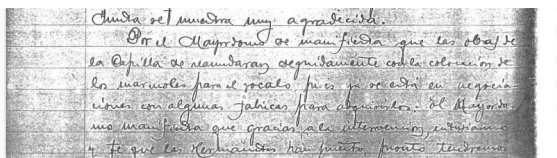 Junta se muestra muy agradecida.
Por el Mayordomo se manifiesta que las obras de
la Capilla se reanudaran seguidamente con la colocacion de
los marmoles para el zocalo pues ya se está en negocia
ciones con algunas fabricas para adquirirlos. El Mayordo
mo manifiesta que gracias a la intervencion, entusiasmo
y fe que los Hermanos han puesto, pronto tendremos